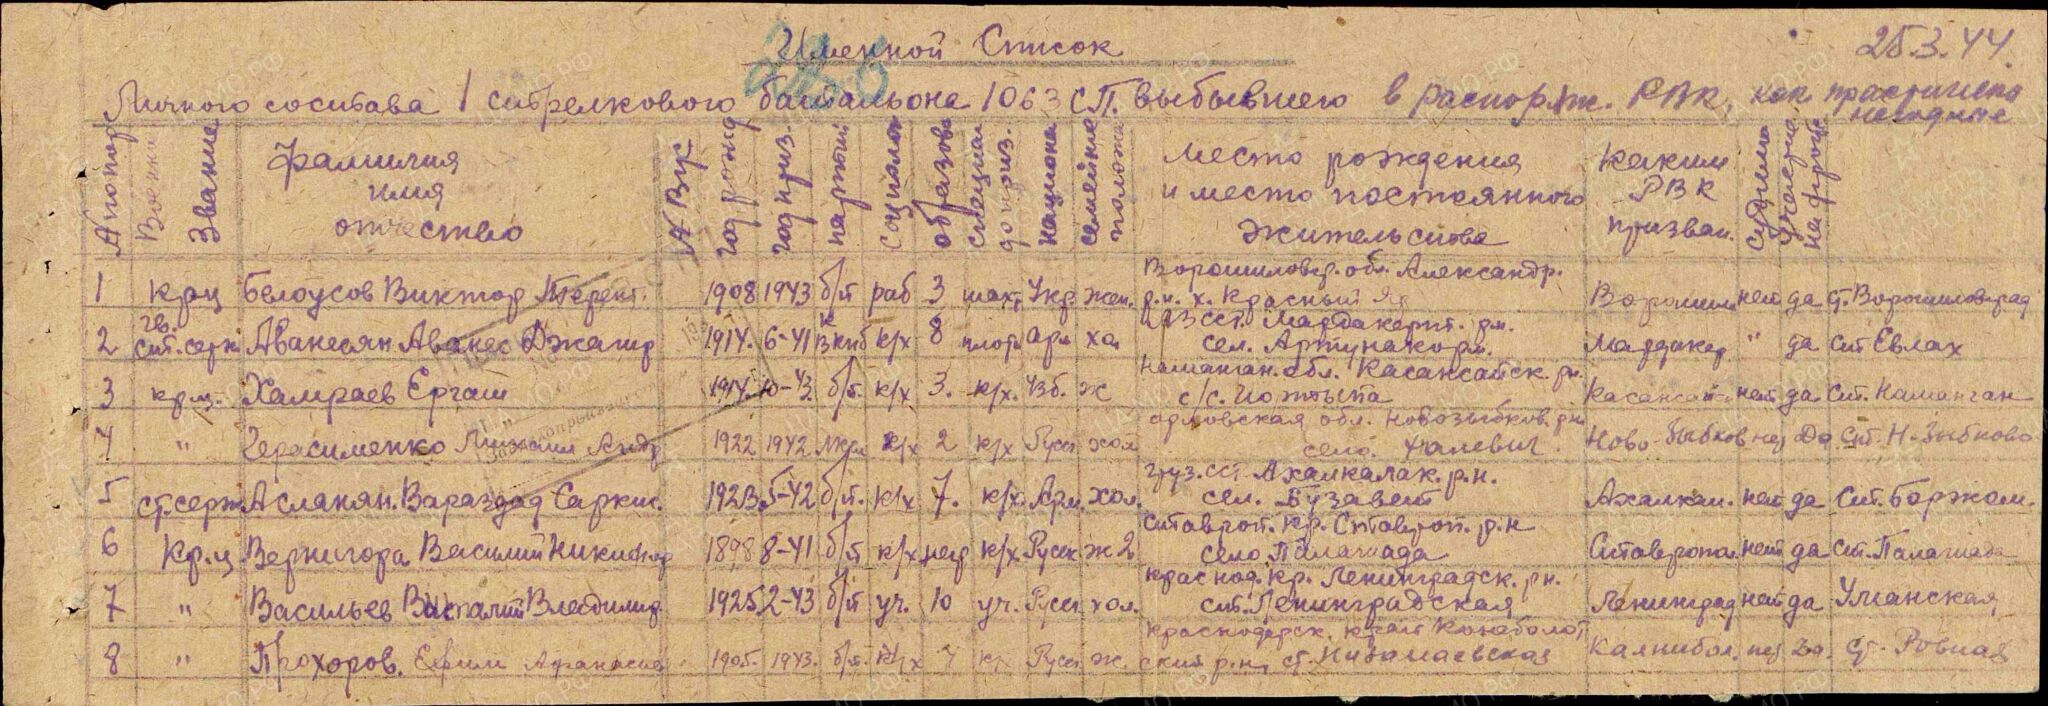 Именной Список
25.3.44.
Личного состава 1 стрелкового батальона 1063 сп. выбывшего в распоряж. РВК, как
негодные
Военн Звание
фамилия имя отчество
№ ВУС
год рожд
год приз.
партий
социальн
образов
специал допризв.
национал
семейное полож
Место рождения и место постоянного жительства
Каким РВК призван.
судим
на фронте
1 Кр-ц Белоусов Виктор Терент. 1908 1943 б/п раб 3 шахт Укр. жен. Ворошиловгр. обл. Александр. р.н. х. Красный Яр Ворошил нет да ст. Ворошиловград
2 гв. ст. серж Аванесян Аванес 1914. 6-41 к ВКПб к/х 8 Арм хол ССР. Мардакерт. рн. сел. Мардакер " да ст Евлах
3 кр.ц. Хамраев Ергаш 1914. 10-43. б/п. к/х 3. к/х. Узб. ж Наманган. обл. Касансайск. рн. с/с. Касансай нет да ст. Наманган
4 " Герасименко Михаил Андр 1922 1942 к/х 2 к/х Русск хол Орловская обл. Новозыбков. рн село. Ново-Зыбков нет Да Ст. Н-Зыбково
5 ст. серж Асланян. Вараздад Саркис. 1923. 5-42 б/п. к/х 7. к/х. Арм. хол. Груз. ССР. Ахалкалак. р.н. сел. Бузавет Ахалкал. нет да Ст. Боржом.
6 Кр.ц Вернигора Василий Никифор 1898 8-41 б/п к/х негр к/х Русск ж 2 Ставроп. кр. Ставроп. р.н село Палагиада Ставропол нет да ст. Палагиада
7 " Васильев Виталий Владимир. 1925 2-43 б/п уч. 10 уч. Русск хол. Краснод. кр. Ленинградск. рн. ст. Ленинградская Ленинград нет да Уманская
8 " Прохоров. Ефим Афанасие 1905. 1943. б/п. к/х Русск ж. Краснодарск. край ский р.н, ст. Незамаевская Калнибол. нет Да. ст. Ровная